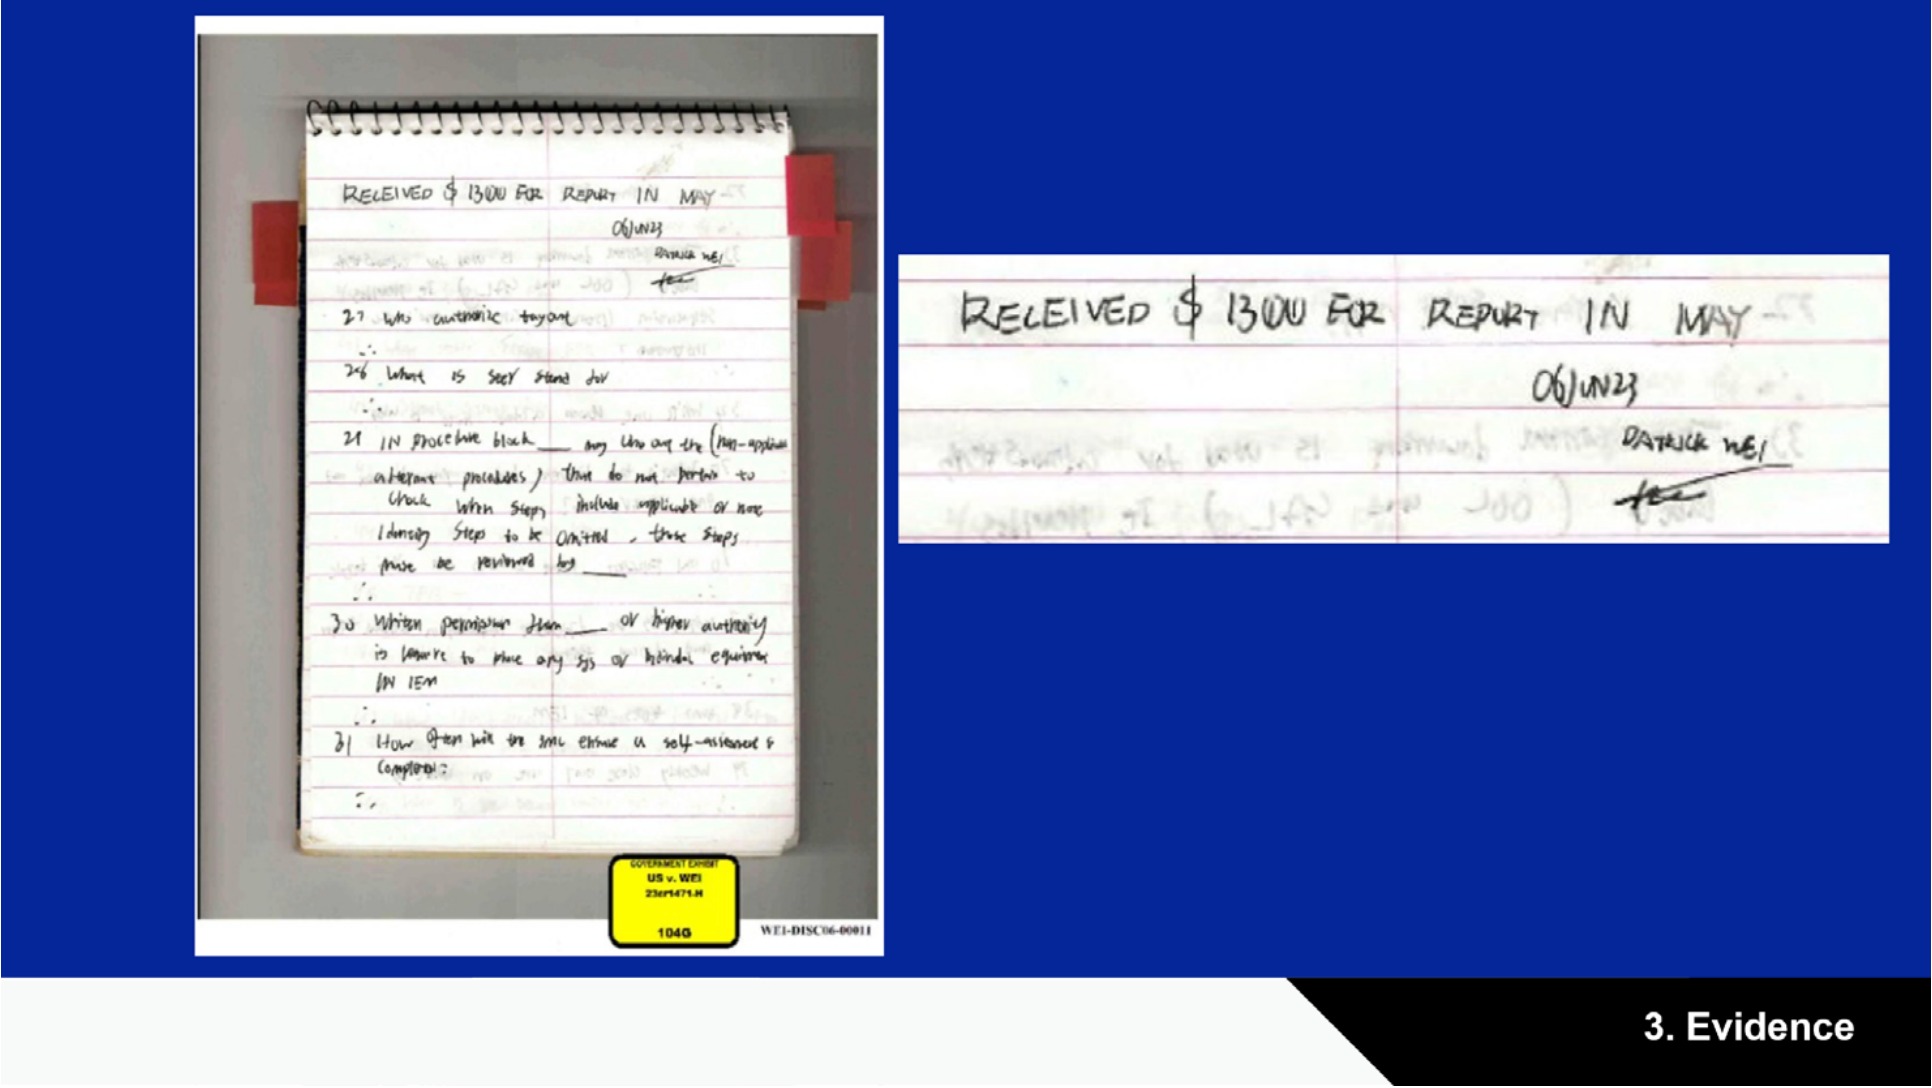 RECEIVED $ 1300 FOR REPORT IN MAY
06JUN23
PATRICK WEI
27 who authorize tagout
∴
28 What is stand for
∴
29 IN procedure block ___ any the (non-applicable
alternat procedures) that do not pertain to
check when steps include applicable or
steps to be omitted, those steps
must be reviewed by ___
∴
30 Written permission from ___ or higher authority
is to place any sys or equipment
IN IEM
∴
31 How often will the ensure a self-assessment is
completed:
∴
GOVERNMENT EXHIBIT
US v. WEI
23cr1471-H
104G
WEI-DISC06-00011
RECEIVED $ 1300 FOR REPORT IN MAY
06JUN23
PATRICK WEI
3. Evidence